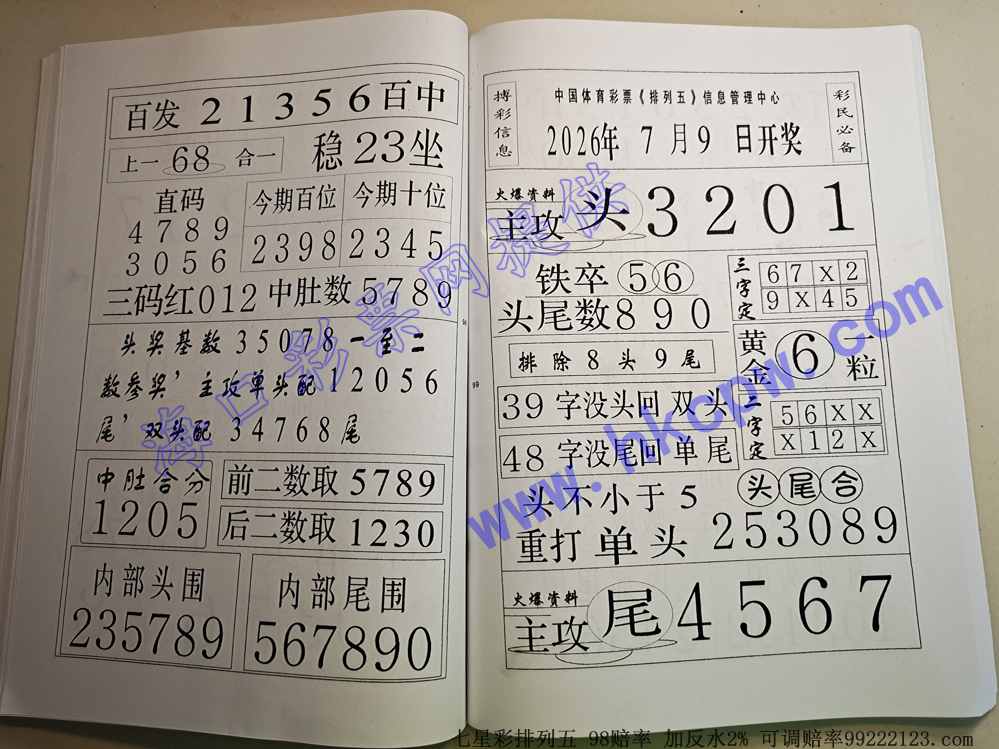 百发 21356 百中
上一 68 合一
稳23坐
直码
4789
3056
今期百位
今期十位
2398
2345
三码红012
中肚数5789
头奖基数35078一至二
数参奖’主攻单头配12056
尾’双头配34768尾
中肚合分
1205
前二数取5789
后二数取1230
内部头围
235789
内部尾围
567890
搏彩信息
中国体育彩票《排列五》信息管理中心
2026年7月9日开奖
彩民必备
火爆资料
主攻头3201
铁卒56
头尾数890
三字定
67X2
9X45
排除8头9尾
黄金6一粒
39字没头回双头
48字没尾回单尾
二字定
56XX
X12X
头不小于5
头尾合
重打单头
253089
火爆资料
主攻尾4567
海口彩票网提供
www.hkcpw.com
七星彩排列五 98赔率 加反水2% 可调赔率99222123.com